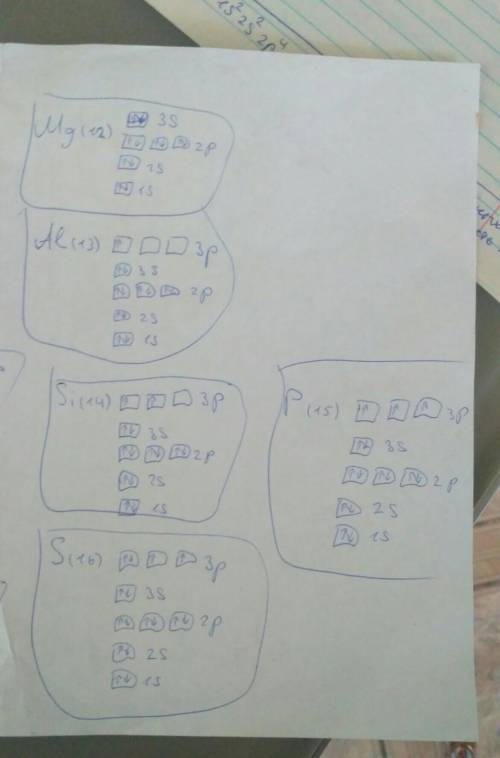 1s² 2s²
2p⁴
Mg(12) [↑↓] 3s
[↑↓] [↑↓] [↑↓] 2p
[↑↓] 2s
[↑↓] 1s
Al(13) [↑] [ ] [ ] 3p
[↑↓] 3s
[↑↓] [↑↓] [↑↓] 2p
[↑↓] 2s
[↑↓] 1s
Si(14) [↑] [↑] [ ] 3p
[↑↓] 3s
[↑↓] [↑↓] [↑↓] 2p
[↑↓] 2s
[↑↓] 1s
P(15) [↑] [↑] [↑] 3p
[↑↓] 3s
[↑↓] [↑↓] [↑↓] 2p
[↑↓] 2s
[↑↓] 1s
S(16) [↑↓] [↑] [↑] 3p
[↑↓] 3s
[↑↓] [↑↓] [↑↓] 2p
[↑↓] 2s
[↑↓] 1s